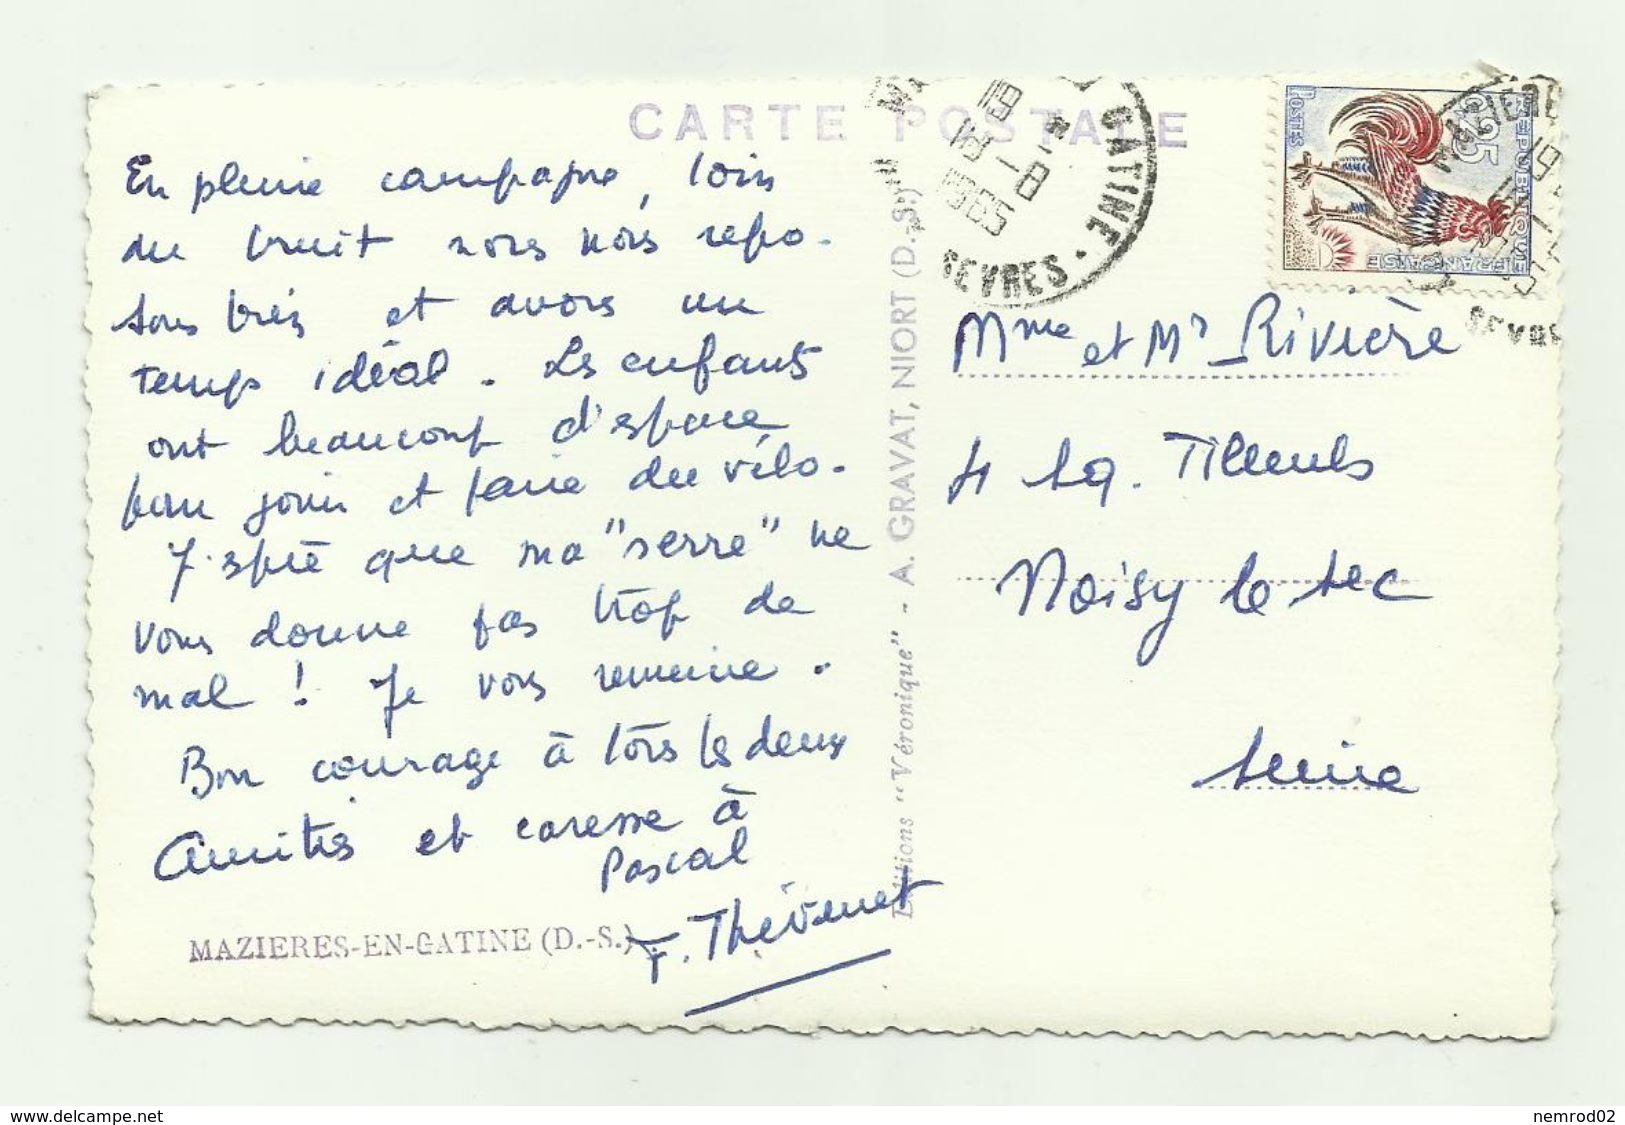 CARTE POSTALE
En pleine campagne, loin
du bruit nous nous repo-
sons bien et avons un
temps idéal. Les enfants
ont beaucoup d'espace
pour jouer et faire du vélo.
J'espère que ma "serre" ne
vous donne pas trop de
mal! Je vous remercie.
Bon courage à tous les deux
Amitiés et caresse à
Pascal
F. Thévenet
MAZIERES-EN-GATINE (D.-S.)
Editions "Véronique" - A. GRAVAT, NIORT (D.-S.)
GATINE
19 H
18 -8
1965
SEVRES
REPUBLIQUE
FRANÇAISE
0,25
POSTES
MAZIERE
SEVRE
Mme et Mr Rivière
4 sq. Tilleuls
Noisy le sec
Seine
www.delcampe.net
nemrod02